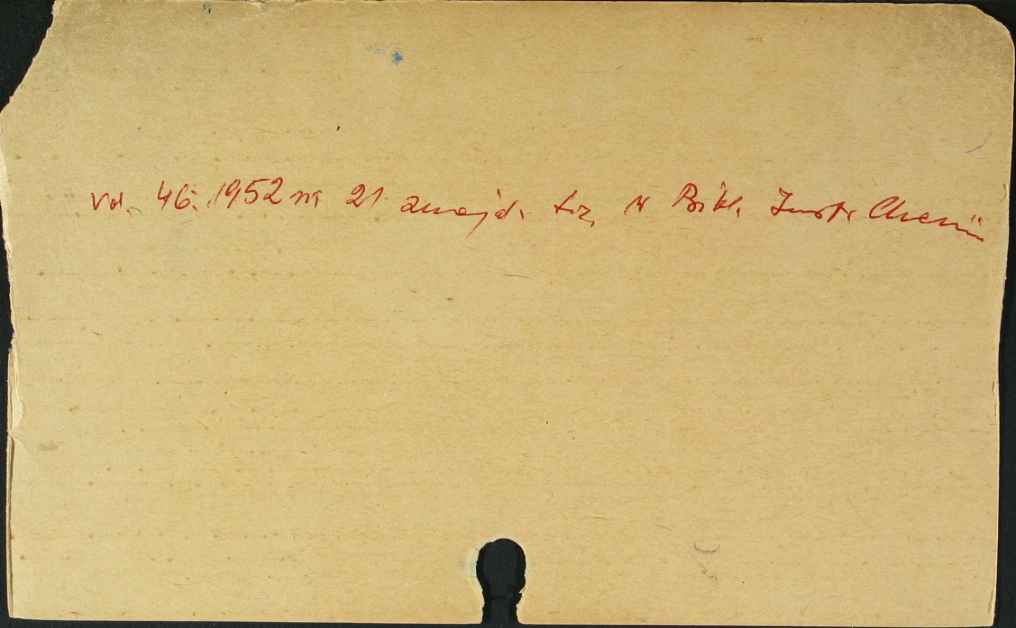 vol. 46. 1952 nr 21 znajd. się w Bibl. Inst. Chemii